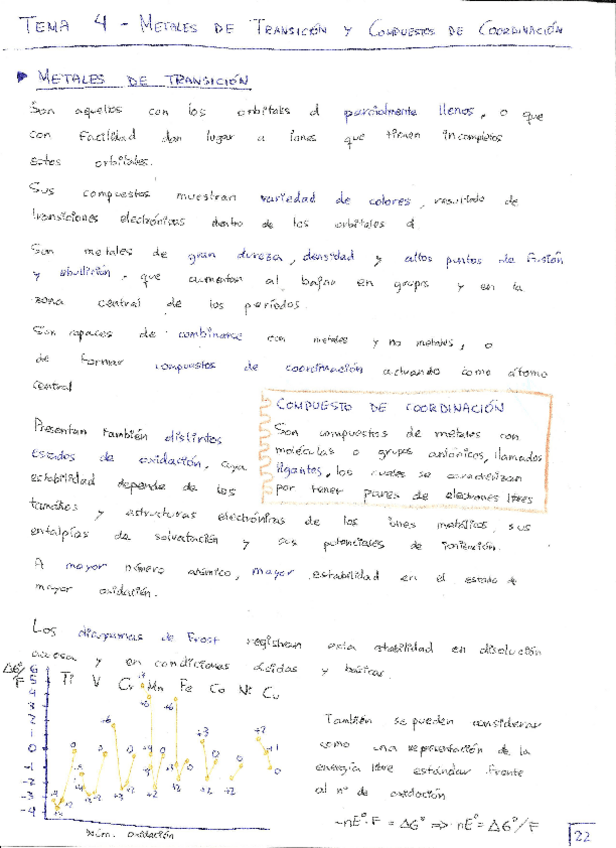 TEMA 4 - METALES DE TRANSICIÓN Y COMPUESTOS DE COORDINACIÓN
METALES DE TRANSICIÓN
Son aquellos con los orbitales d parcialmente llenos, o que
con facilidad dan lugar a iones que tienen incompletos
estos orbitales.
Sus compuestos muestran variedad de colores, resultado de
transiciones electrónicas dentro de los orbitales d.
Son metales de gran dureza, densidad y altos puntos de fusión
y ebullición, que aumentan al bajar en grupos y en la
zona central de los períodos.
Son capaces de combinarse con metales y no metales, o
de formar compuestos de coordinación actuando como átomo
central
COMPUESTO DE COORDINACIÓN
Son compuestos de metales con
moléculas o grupos aniónicos, llamados
ligantes, los cuales se caracterizan
por tener pares de electrones libres
Presentan también distintos
estados de oxidación, cuya
estabilidad depende de los
tamaños y estructuras electrónicas de los iones metálicos, sus
entalpías de solvatación y sus potenciales de ionización.
A mayor número atómico, mayor estabilidad en el estado de
mayor oxidación.
Los diagramas de Frost registran esta estabilidad en disolución
acuosa y en condiciones ácidas y básicas.
ΔG°/F
6
5
4
3
2
1
0
-1
-2
-3
-4
Ti V Cr Mn Fe Co Ni Cu
Núm. oxidación
También se pueden considerar
como una representación de la
energía libre estándar frente
al nº de oxidación
-nE°·F = ΔG° => nE° = ΔG°/F
22